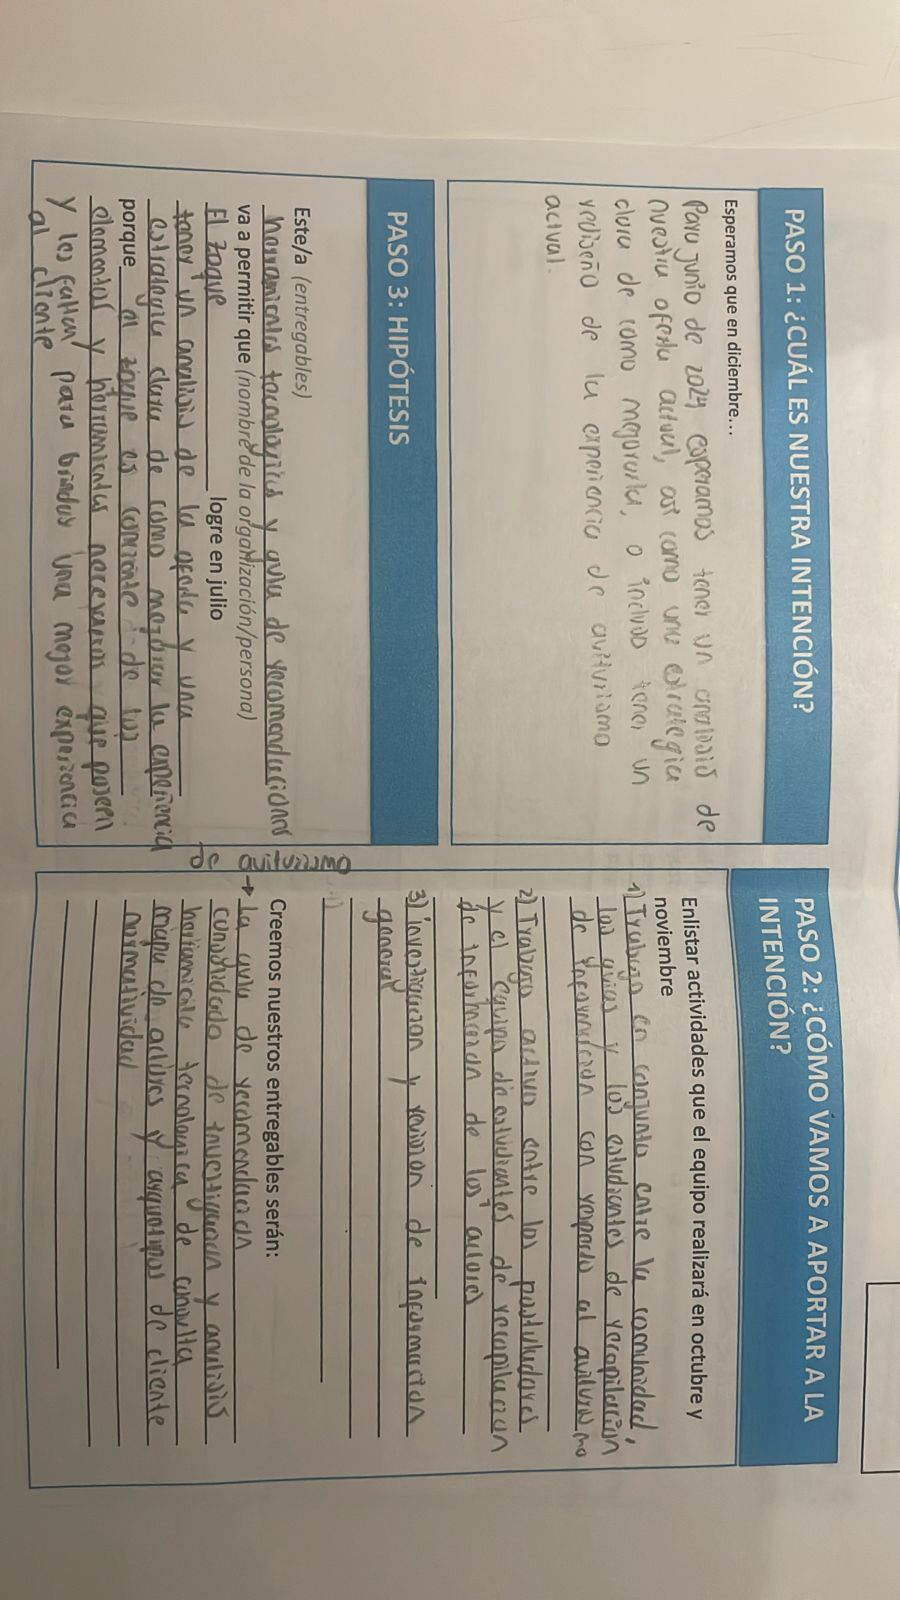 PASO 1: ¿CUÁL ES NUESTRA INTENCIÓN?
Esperamos que en diciembre...
Para junio de 2024 esperamos tener un analisis de
nuestra oferta actual, asi como una estrategia
clara de como mejorarla, o incluso tener un
rediseño de la experiencia de aviturismo
actual.
PASO 3: HIPÓTESIS
Este/a (entregables)
herramientas tecnologicas y guia de recomendaciones
va a permitir que (nombre de la organización/persona)
El zoque logre en julio
tener un analisis de la oferta y una
estrategia clara de como mejorar la experiencia
de aviturismo
porque el zoque es conciente de los
elementos y herramientas necesarias que poseen
y les faltan para brindar una mejor experiencia
al cliente
PASO 2: ¿CÓMO VAMOS A APORTAR A LA
INTENCIÓN?
Enlistar actividades que el equipo realizará en octubre y
noviembre
1) Trabajo en conjunto entre la comunidad,
los guias y los estudiantes de recopilación
de información con respecto al aviturismo
2) Trabajo activo entre los postuladores
y el equipo de estudiantes de recopilacion
de informacion de los actores
3) investigacion y revision de informacion
general
Creemos nuestros entregables serán:
→ La guia de recomendacion
consolidado de investigacion y analisis
herramienta tecnologica de consulta
mapa de actores y arquetipos de cliente
normatividad